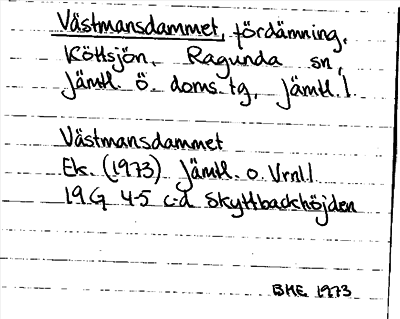 Västmansdammet, fördämning.
Köttsjön, Ragunda sn,
Jämtl. ö. doms. tg, Jämtl. l.
Västmansdammet
Ek. (1973) Jämtl. o. Vrnl.l
19G 4-5 c-d Skyttbackhöjden
BHE 1973